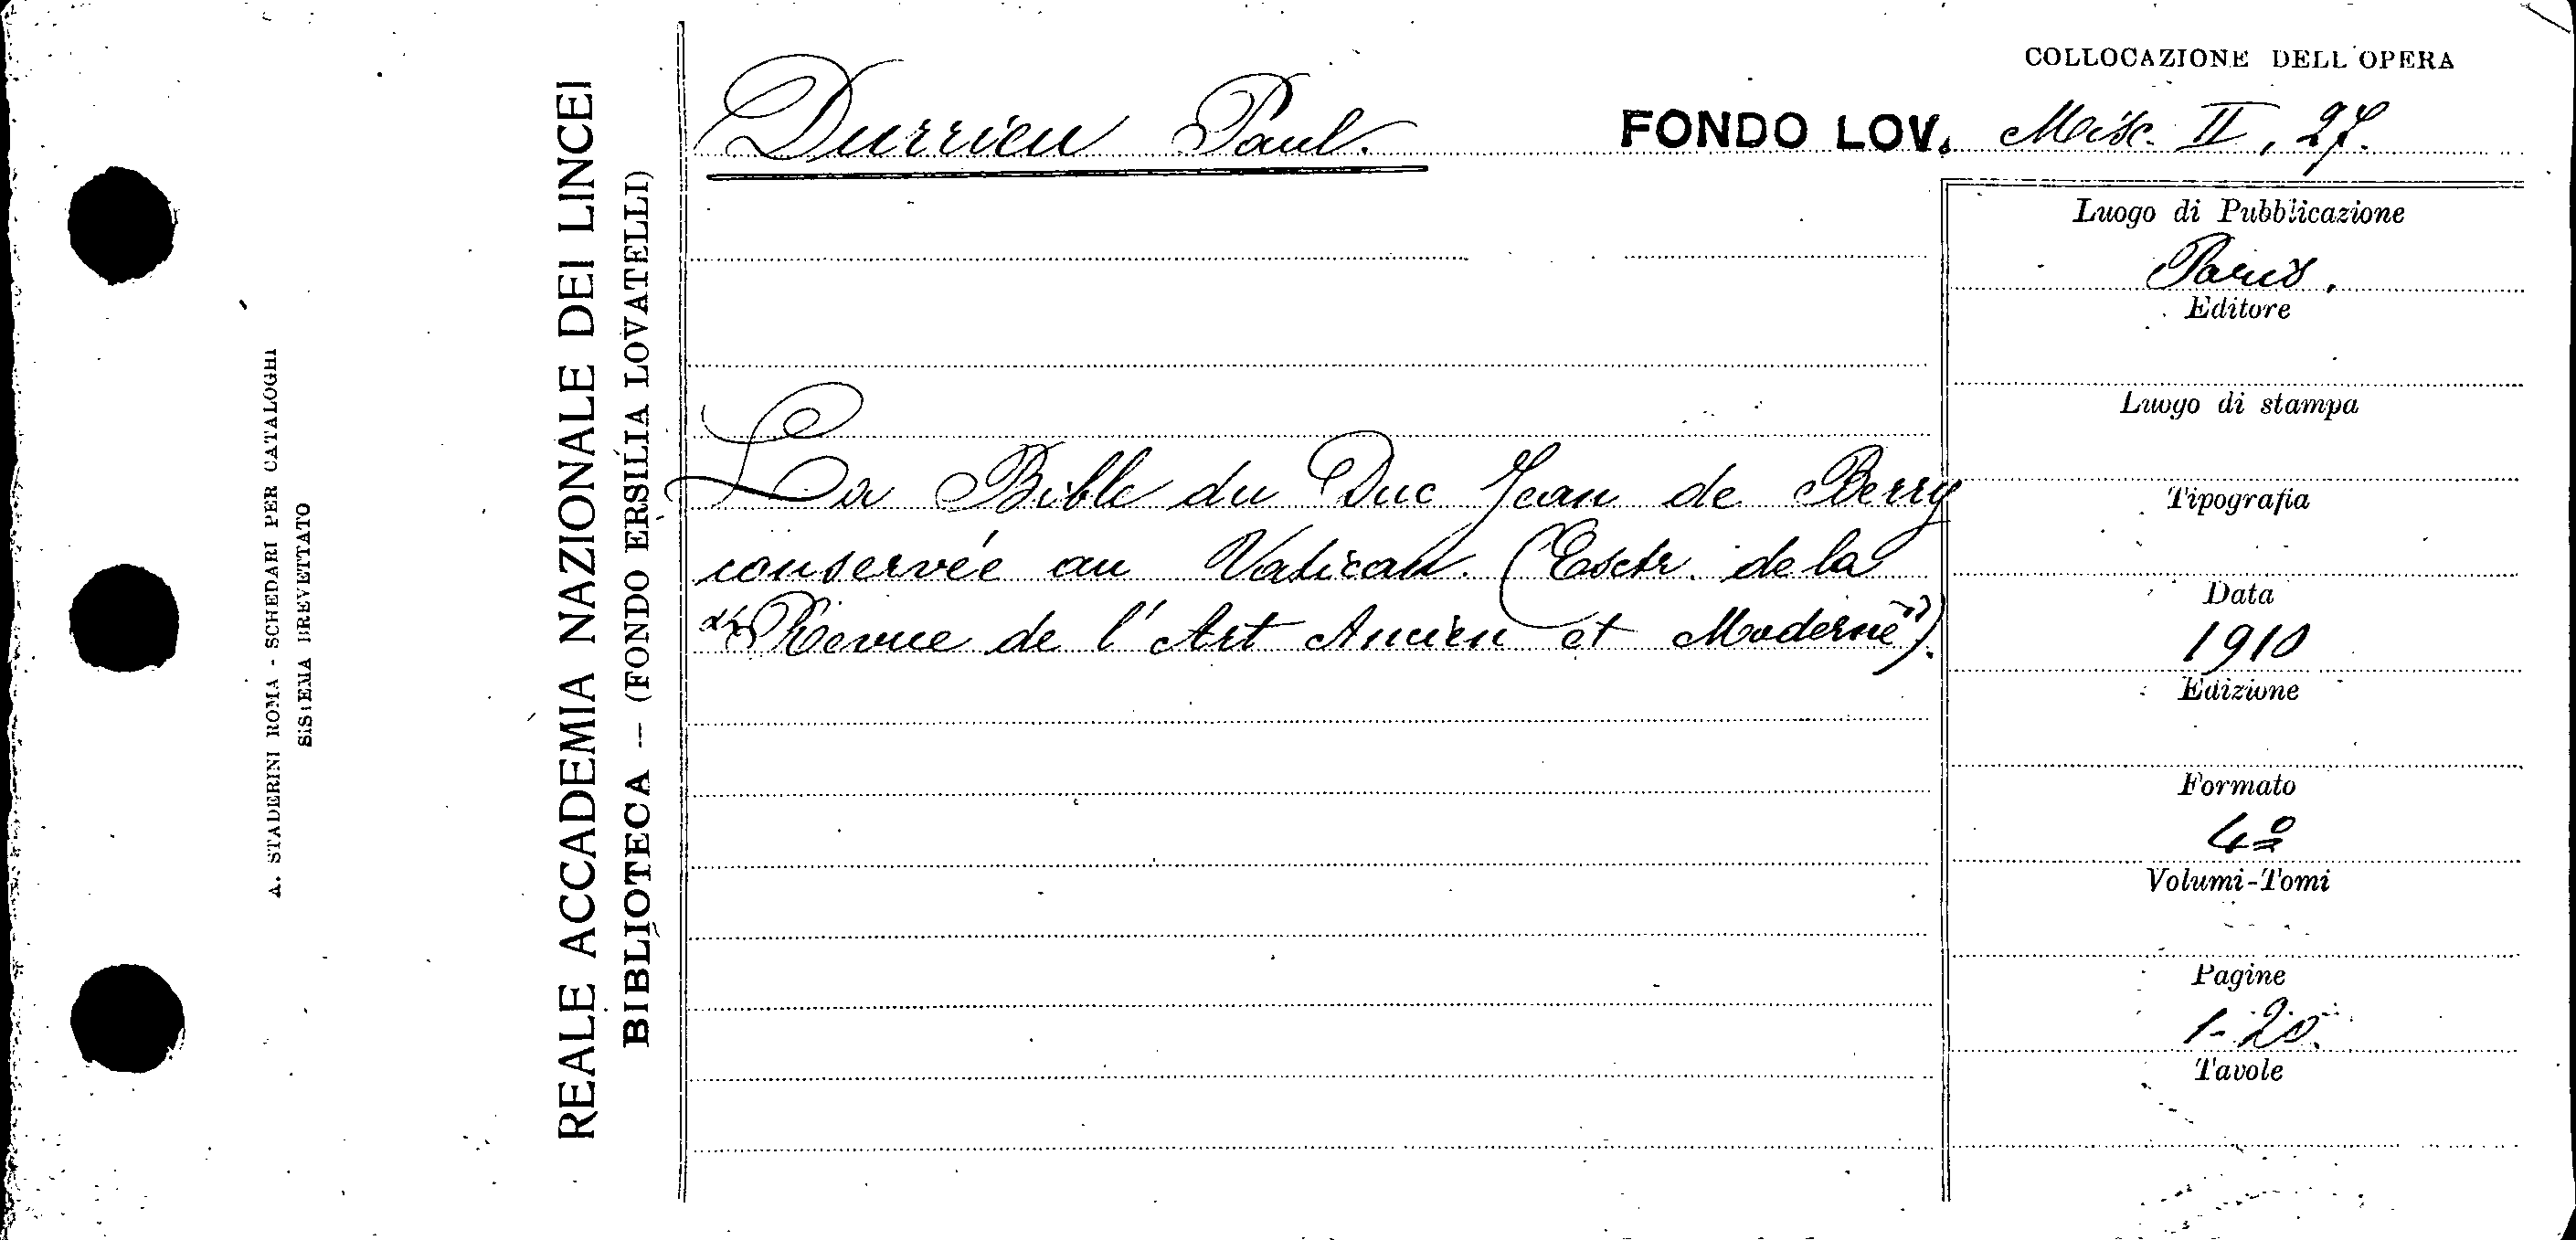 COLLOCAZIONE DELL'OPERA
Durrieu Paul.
FONDO LOV. Misc. II, 27.
La Bible du Duc Jean de Berry
conservée au Vatican. (Esctr. de la
"Revue de l'Art Ancien et Moderne").
Luogo di Pubblicazione
Paris.
Editore
Luogo di stampa
Tipografia
Data
1910
Edizione
Formato
4º
Volumi-Tomi
Pagine
1-20.
Tavole
REALE ACCADEMIA NAZIONALE DEI LINCEI
BIBLIOTECA — (FONDO ERSILIA LOVATELLI)
A. STADERINI ROMA - SCHEDARI PER CATALOGHI
SISTEMA BREVETTATO